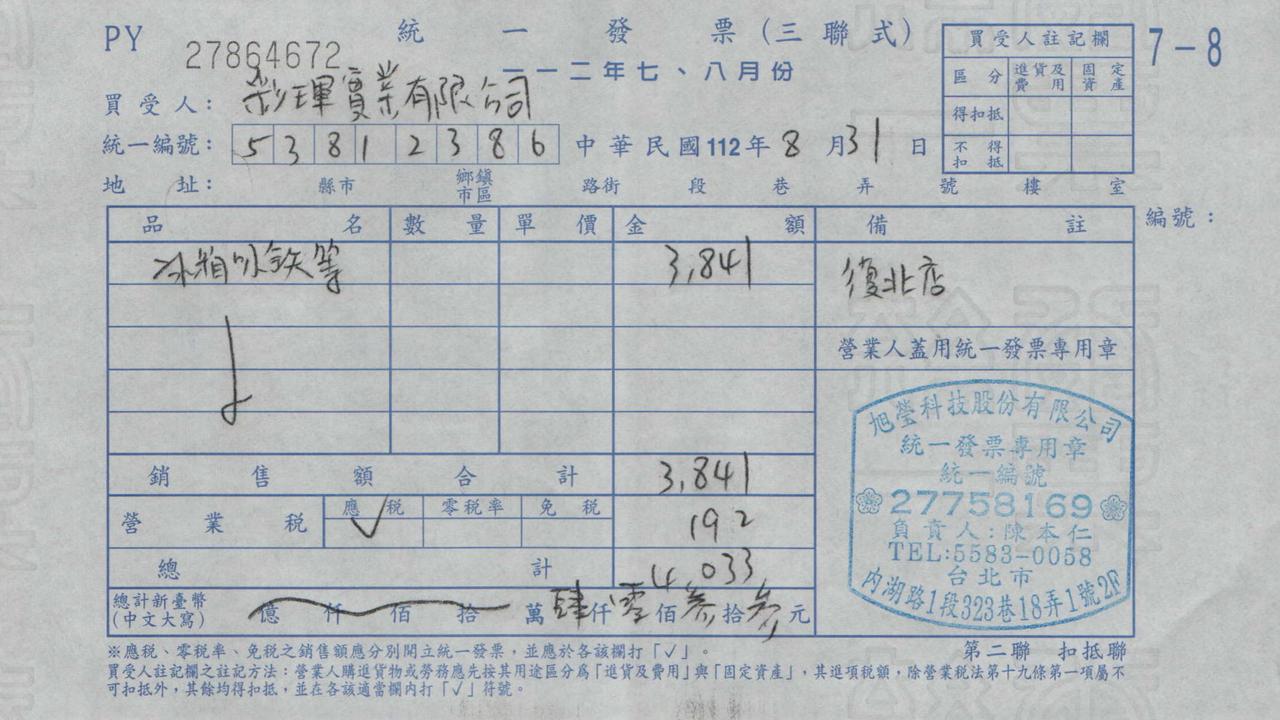 PY 27864672 統一發票(三聯式) 7-8
一一二年七、八月份
買受人: 彩琿實業有限公司
統一編號: 53812386 中華民國112年8月31日
地址: 縣市 鄉鎮市區 路街 段 巷 弄 號 樓 室
買受人註記欄
區分 進貨及費用 固定資產
得扣抵
不得扣抵
品名 數量 單價 金額 備註 編號:
冰箱吸鐵等 3,841 復北店
營業人蓋用統一發票專用章
銷售額合計 3,841
營業稅 應稅 √ 零稅率 免稅 192
總計 4,033
總計新臺幣(中文大寫) 億 仟 佰 拾 萬 肆仟零佰叁拾叁元
旭瑩科技股份有限公司
統一發票專用章
統一編號
27758169
負責人:陳本仁
TEL:5583-0058
台北市
內湖路1段323巷18弄1號2F
※應稅、零稅率、免稅之銷售額應分別開立統一發票,並應於各該欄打「√」。 第二聯 扣抵聯
買受人註記欄之註記方法:營業人購進貨物或勞務應先按其用途區分為「進貨及費用」與「固定資產」,其進項稅額,除營業稅法第十九條第一項屬不
可扣抵外,其餘均得扣抵,並在各該適當欄內打「√」符號。